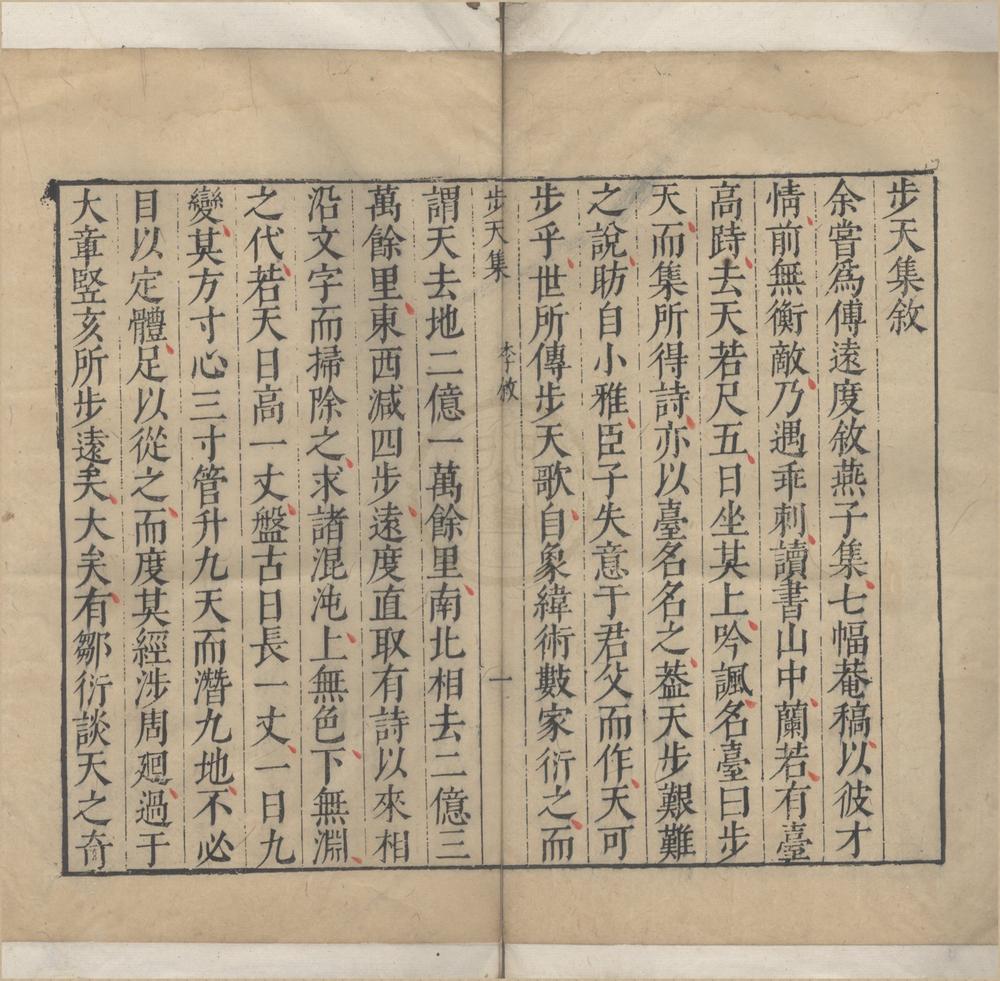 步天集敘
余嘗爲傅遠度敘燕子集七幅菴稿以彼才
情前無衡敵乃遇乖刺讀書山中蘭若有臺
高時去天若尺五日坐其上吟諷名臺曰步
天而集所得詩亦以臺名名之葢天步艱難
之說昉自小雅臣子失意于君父而作天可
步乎世所傳步天歌自象緯術數家衍之而
步天集 李敘 一
謂天去地二億一萬餘里南北相去二億三
萬餘里東西減四步遠度直取有詩以來相
沿文字而掃除之求諸混沌上無色下無淵
之代若天日高一丈盤古日長一丈一日九
變其方寸心三寸管升九天而潛九地不必
目以定體足以從之而度其經涉周廻過于
大章豎亥所步遠矣大矣有鄒衍談天之奇